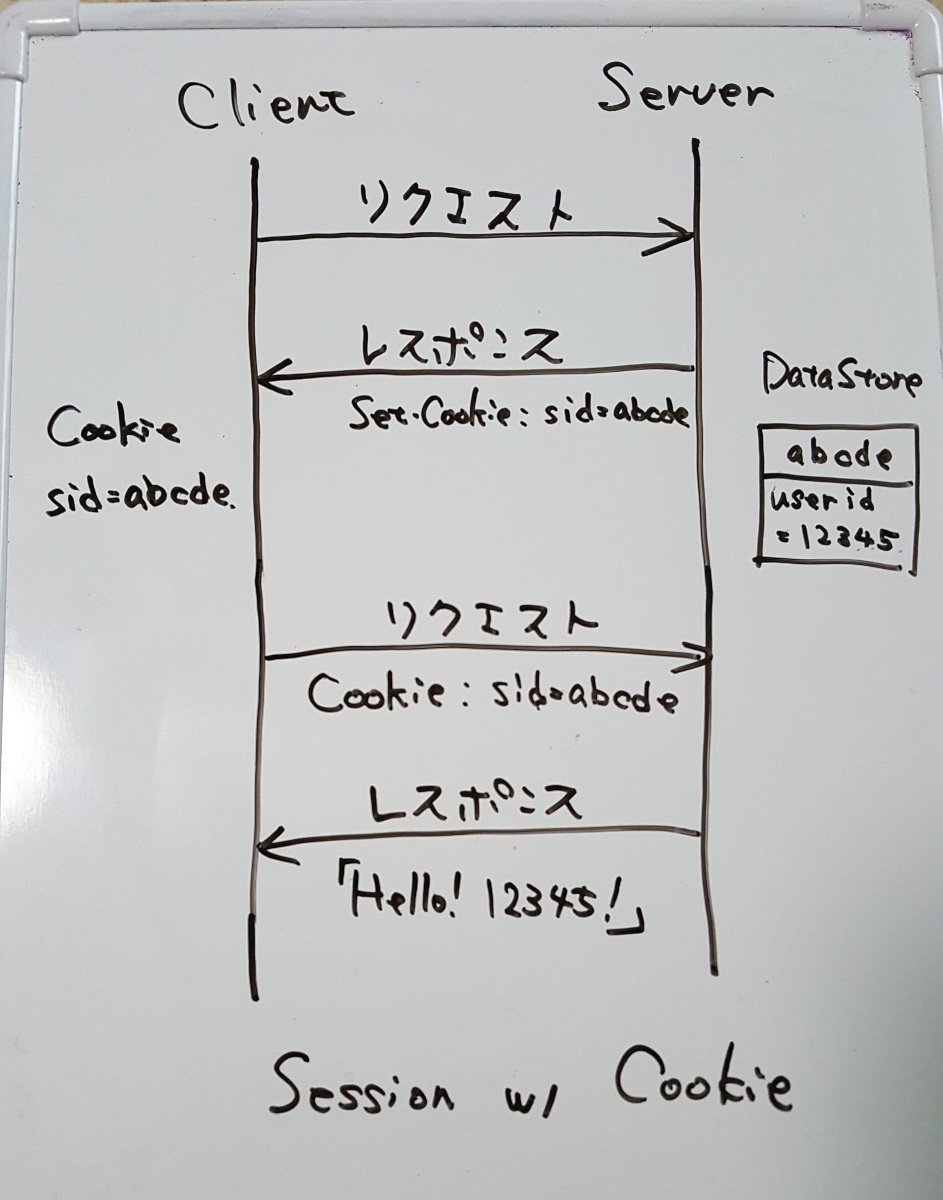 Client
Server
リクエスト
レスポンス
Set-Cookie: sid=abcde
DataStore
abcde
userid
=12345
Cookie
sid=abcde.
リクエスト
Cookie: sid=abcde
レスポンス
「Hello! 12345!」
Session w/ Cookie